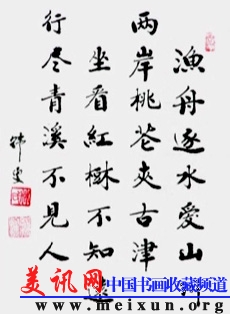 漁舟逐水愛山
两岸桃花夹古津
坐看紅樹不知
行尽青溪不見人
美讯网 中国书画收藏频道
www.meixun.org